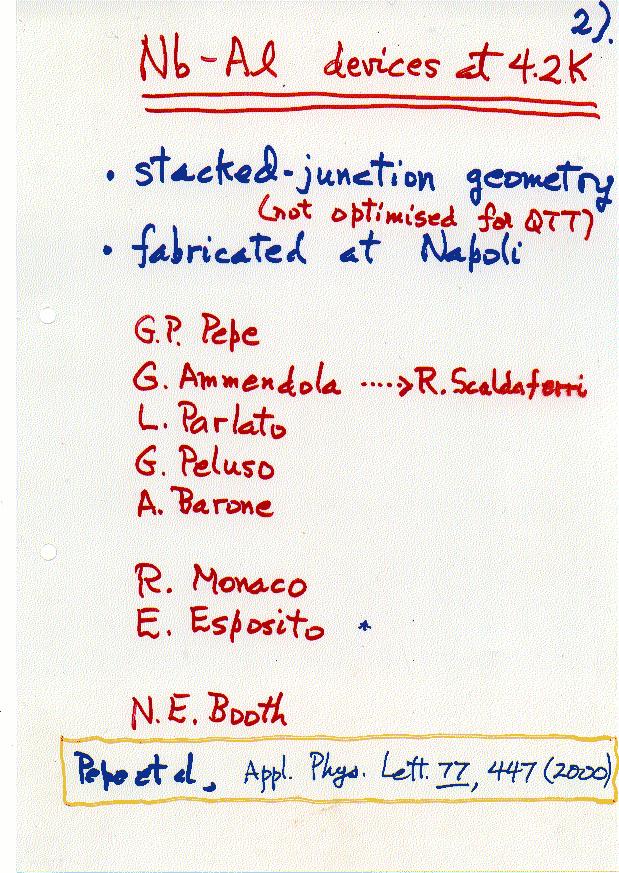 2).
Nb-Al devices at 4.2K
• stacked-junction geometry
(not optimised for QTT)
• fabricated at Napoli
G.P. Pepe
G. Ammendola ····> R. Scaldaferri
L. Parlato
G. Peluso
A. Barone
R. Monaco
E. Esposito *
N.E. Booth
Pepe et al, Appl. Phys. Lett. 77, 447 (2000)